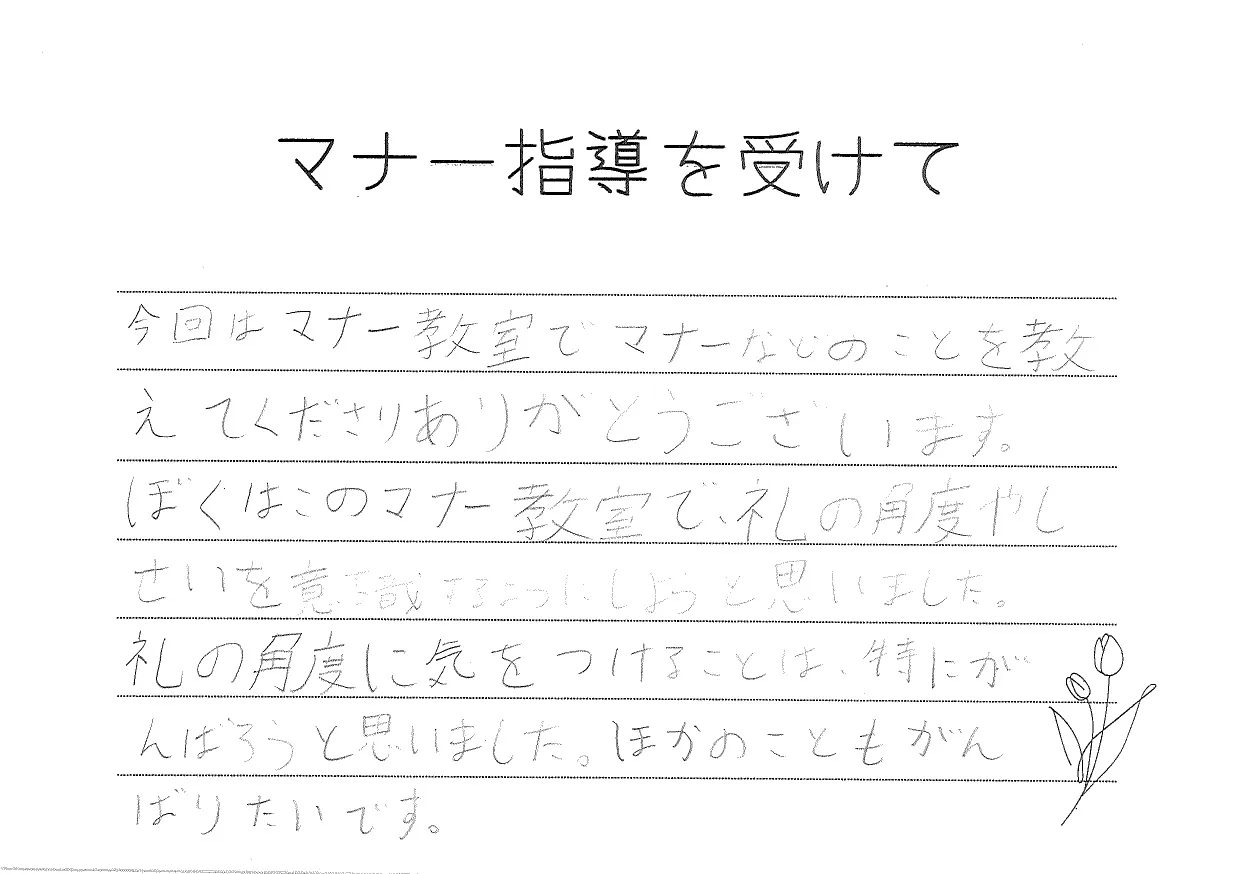 マナー指導を受けて
今回はマナー教室でマナーなどのことを教
えてくださりありがとうございます。
ぼくはこのマナー教室で、礼の角度やし
せいを意識するようにしようと思いました。
礼の角度に気をつけることは、特にが
んばろうと思いました。ほかのこともがん
ばりたいです。